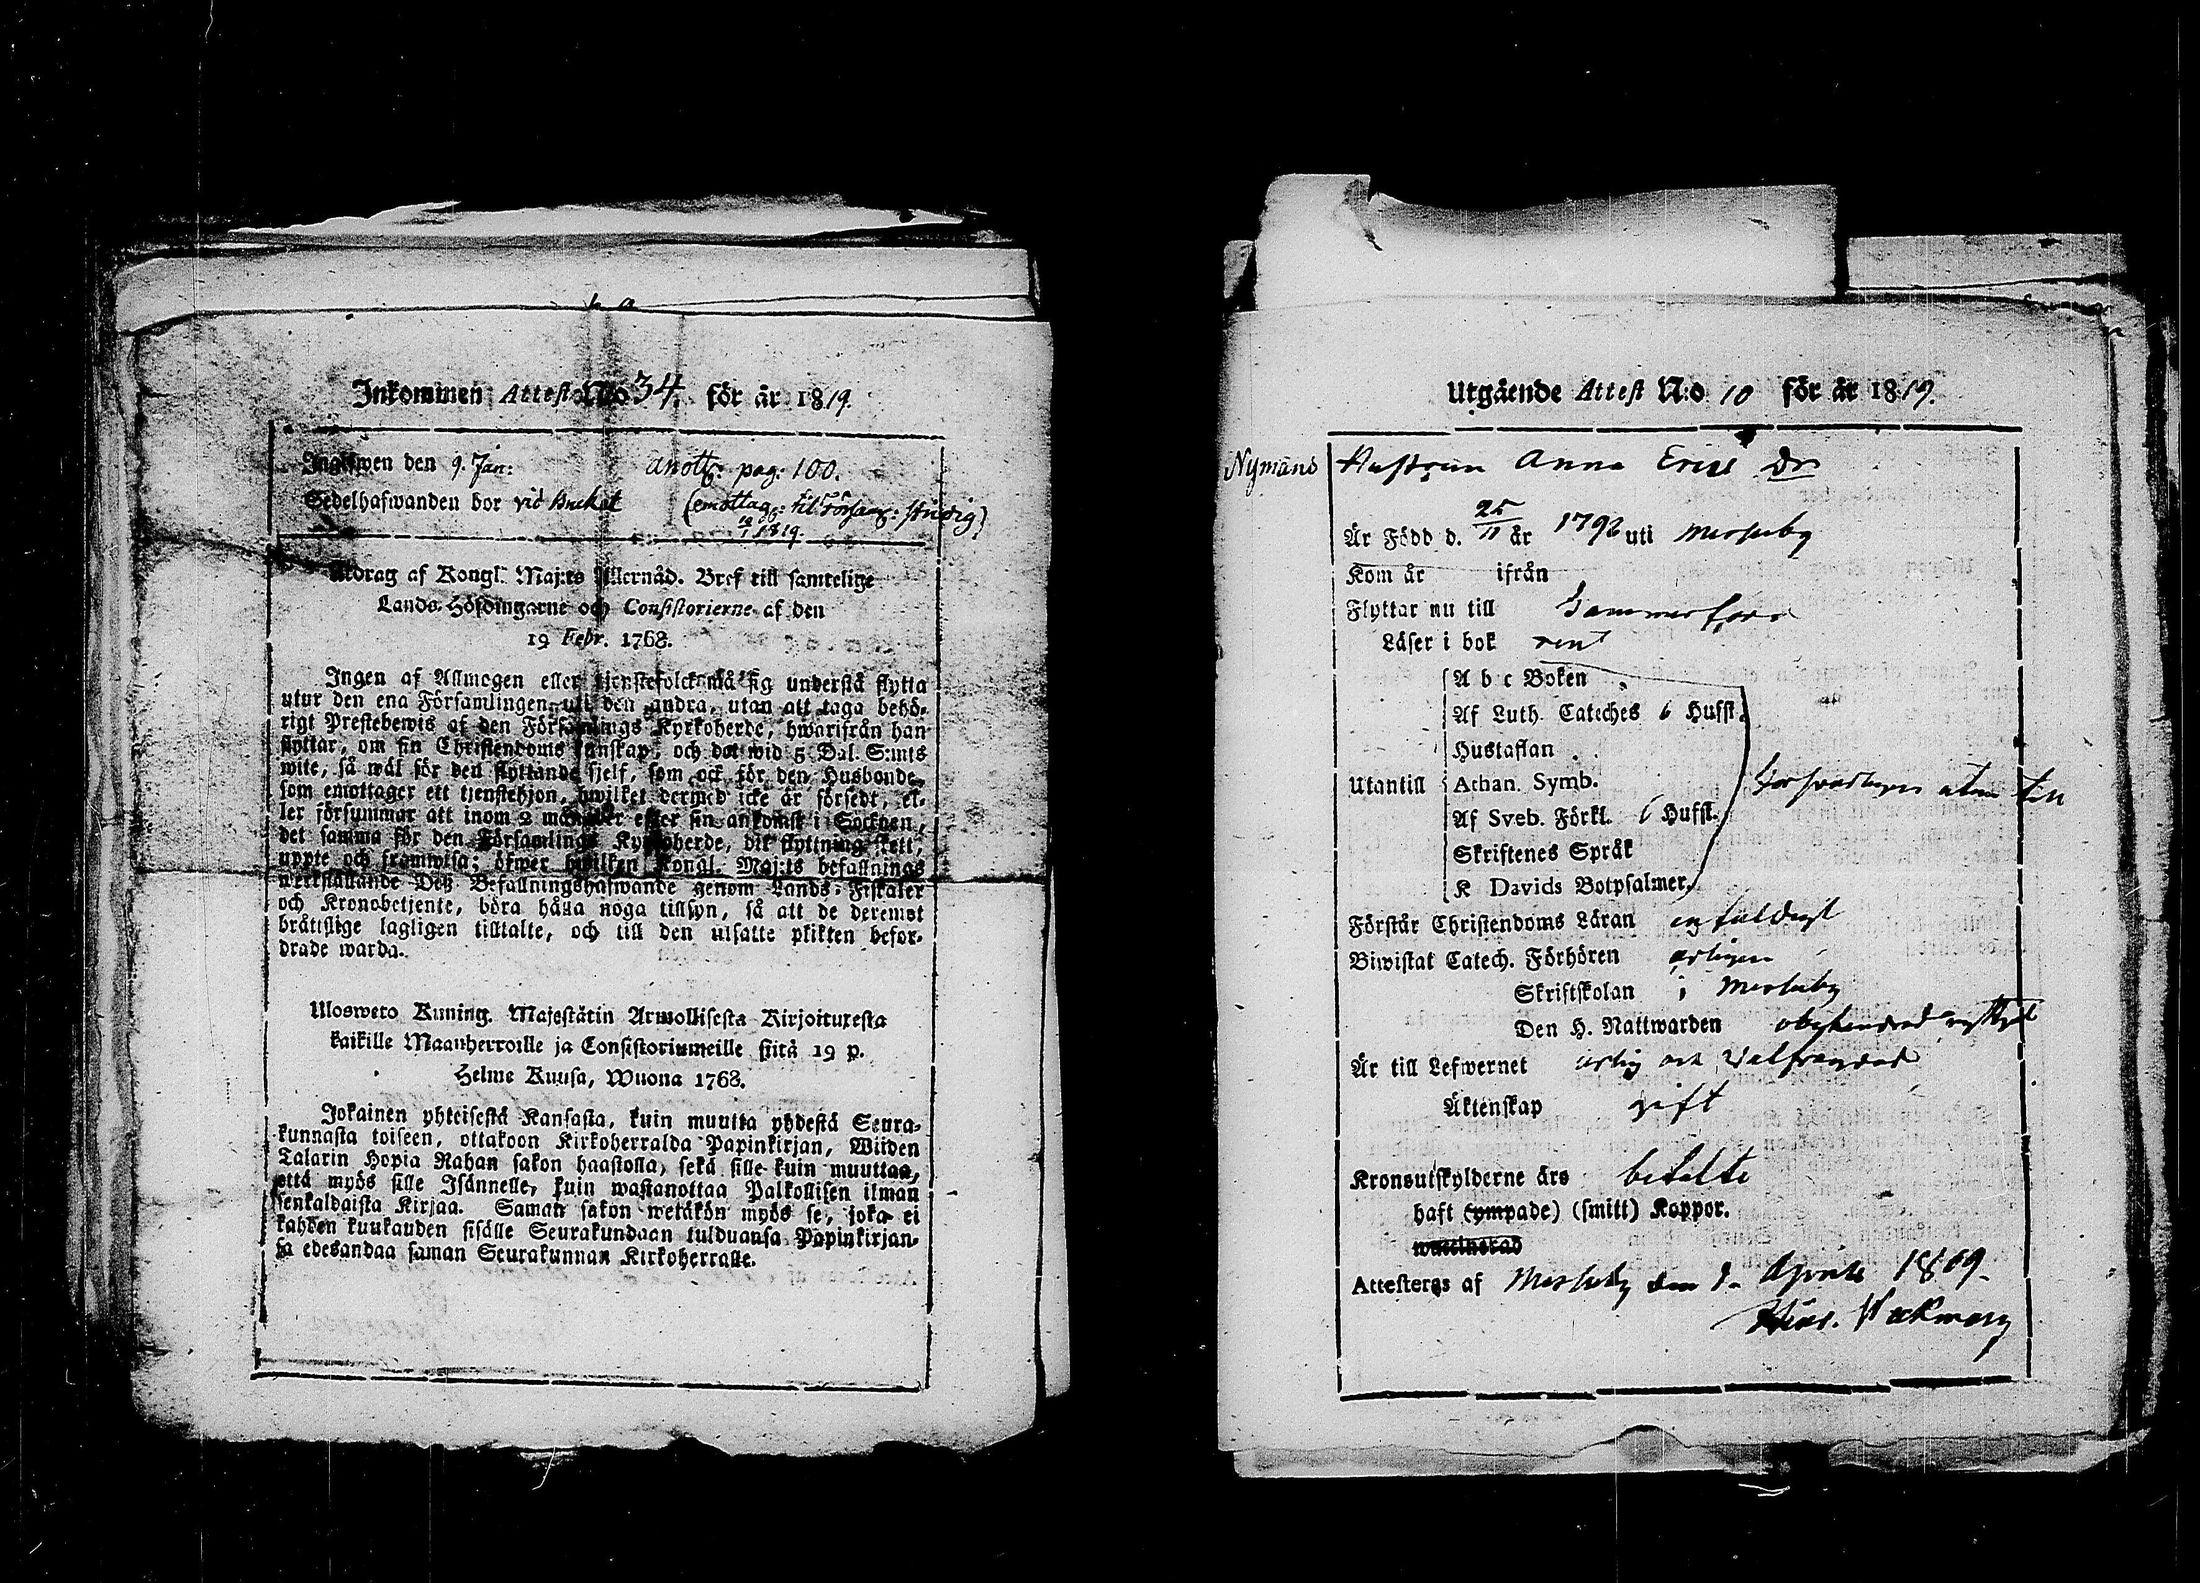 Inkommen Attest No 34. för år 1819.
Ingifwen den 9. Jan: anott: pag: 100.
Sedelhafwanden bor vid Bruket (emottag: til Försam:
1819.
Utdrag af Kongl. Maj:ts Allernåd. Bref till samtelige
Lands-Höfdingarne och Consistorierne af den
19 Febr. 1768.
Ingen af Allmogen eller tjenstefolck må sig understå flytta
utur den ena Församlingen uti den andra, utan att taga behö-
rigt Prestebewis af den Församlings Kyrkoherde, hwarifrån han
flyttar, om sin Christendoms kunskap, och det wid 5 Dal. S:mts
wite, så wäl för den flyttande sjelf, som ock för den Husbonde,
som emottager ett tjenstehjon, hwilket dermed icke är försedt, el-
ler försummar att inom 2 månader efter sin ankomst i Socknen,
det samma för den Församlings Kyrkoherde, dit flyttning skett,
uppte och framwisa; öfwer hwilken Kongl. Maj:ts befallnings
werkställande Deß Befallningshafwande genom Lands-Fiskaler
och Kronobetjente, böra hålla noga tillsyn, så att de deremot
bråttslige lagligen tilltalte, och till den utsatte plikten befor-
drade warda.
Ulosweto Kuning. Majestätin Armollisesta Kirjoituxesta
kaikille Maanherroille ja Consistoriumeille siitä 19 p.
Helme Kuusa, Wuona 1768.
Jokainen yhteisestä Kansasta, kuin muutta yhdestä Seura-
kunnasta toiseen, ottakoon Kirkoherralda Papinkirjan, Wiiden
Talarin Hopia Rahan sakon haastolla, sekä sille kuin muuttaa,
että myös sille Isännelle, kuin wastanottaa Palkollisen ilman
senkaldaista Kirjaa. Saman sakon wetäkön myös se, joka ei
kahden kuukauden sisälle Seurakundaan tulduansa Papinkirjan-
sa edesandaa saman Seurakunnan Kirkoherralle.
Utgående Attest N:o 10 för år 1819.
Nymans Hustrun Anna Ersd Dr
Är Född d. 25/11 år 1792 uti
Kom år ifrån
Flyttar nu till
Läser i bok rent
A b c Boken
Af Luth. Cateches 6 Hufst.
Hustaflan
Utantill Athan. Symb. utan till
Af Sveb. Förkl. 6 Hufst.
Skriftenes Språk
K Davids Botpsalmer.
Förstår Christendoms Läran enfaldigt
Biwistat Catech. Förhören årligen
Skriftskolan i
Den H. Nattwarden
Är till Lefwernet ärlig och välfrägdad
Äktenskap gift
Kronoutskylderne äro betalte
haft (ympade) (smitt) Koppor.
waccinerad
Attesteras af den 1. Aprill 1819.